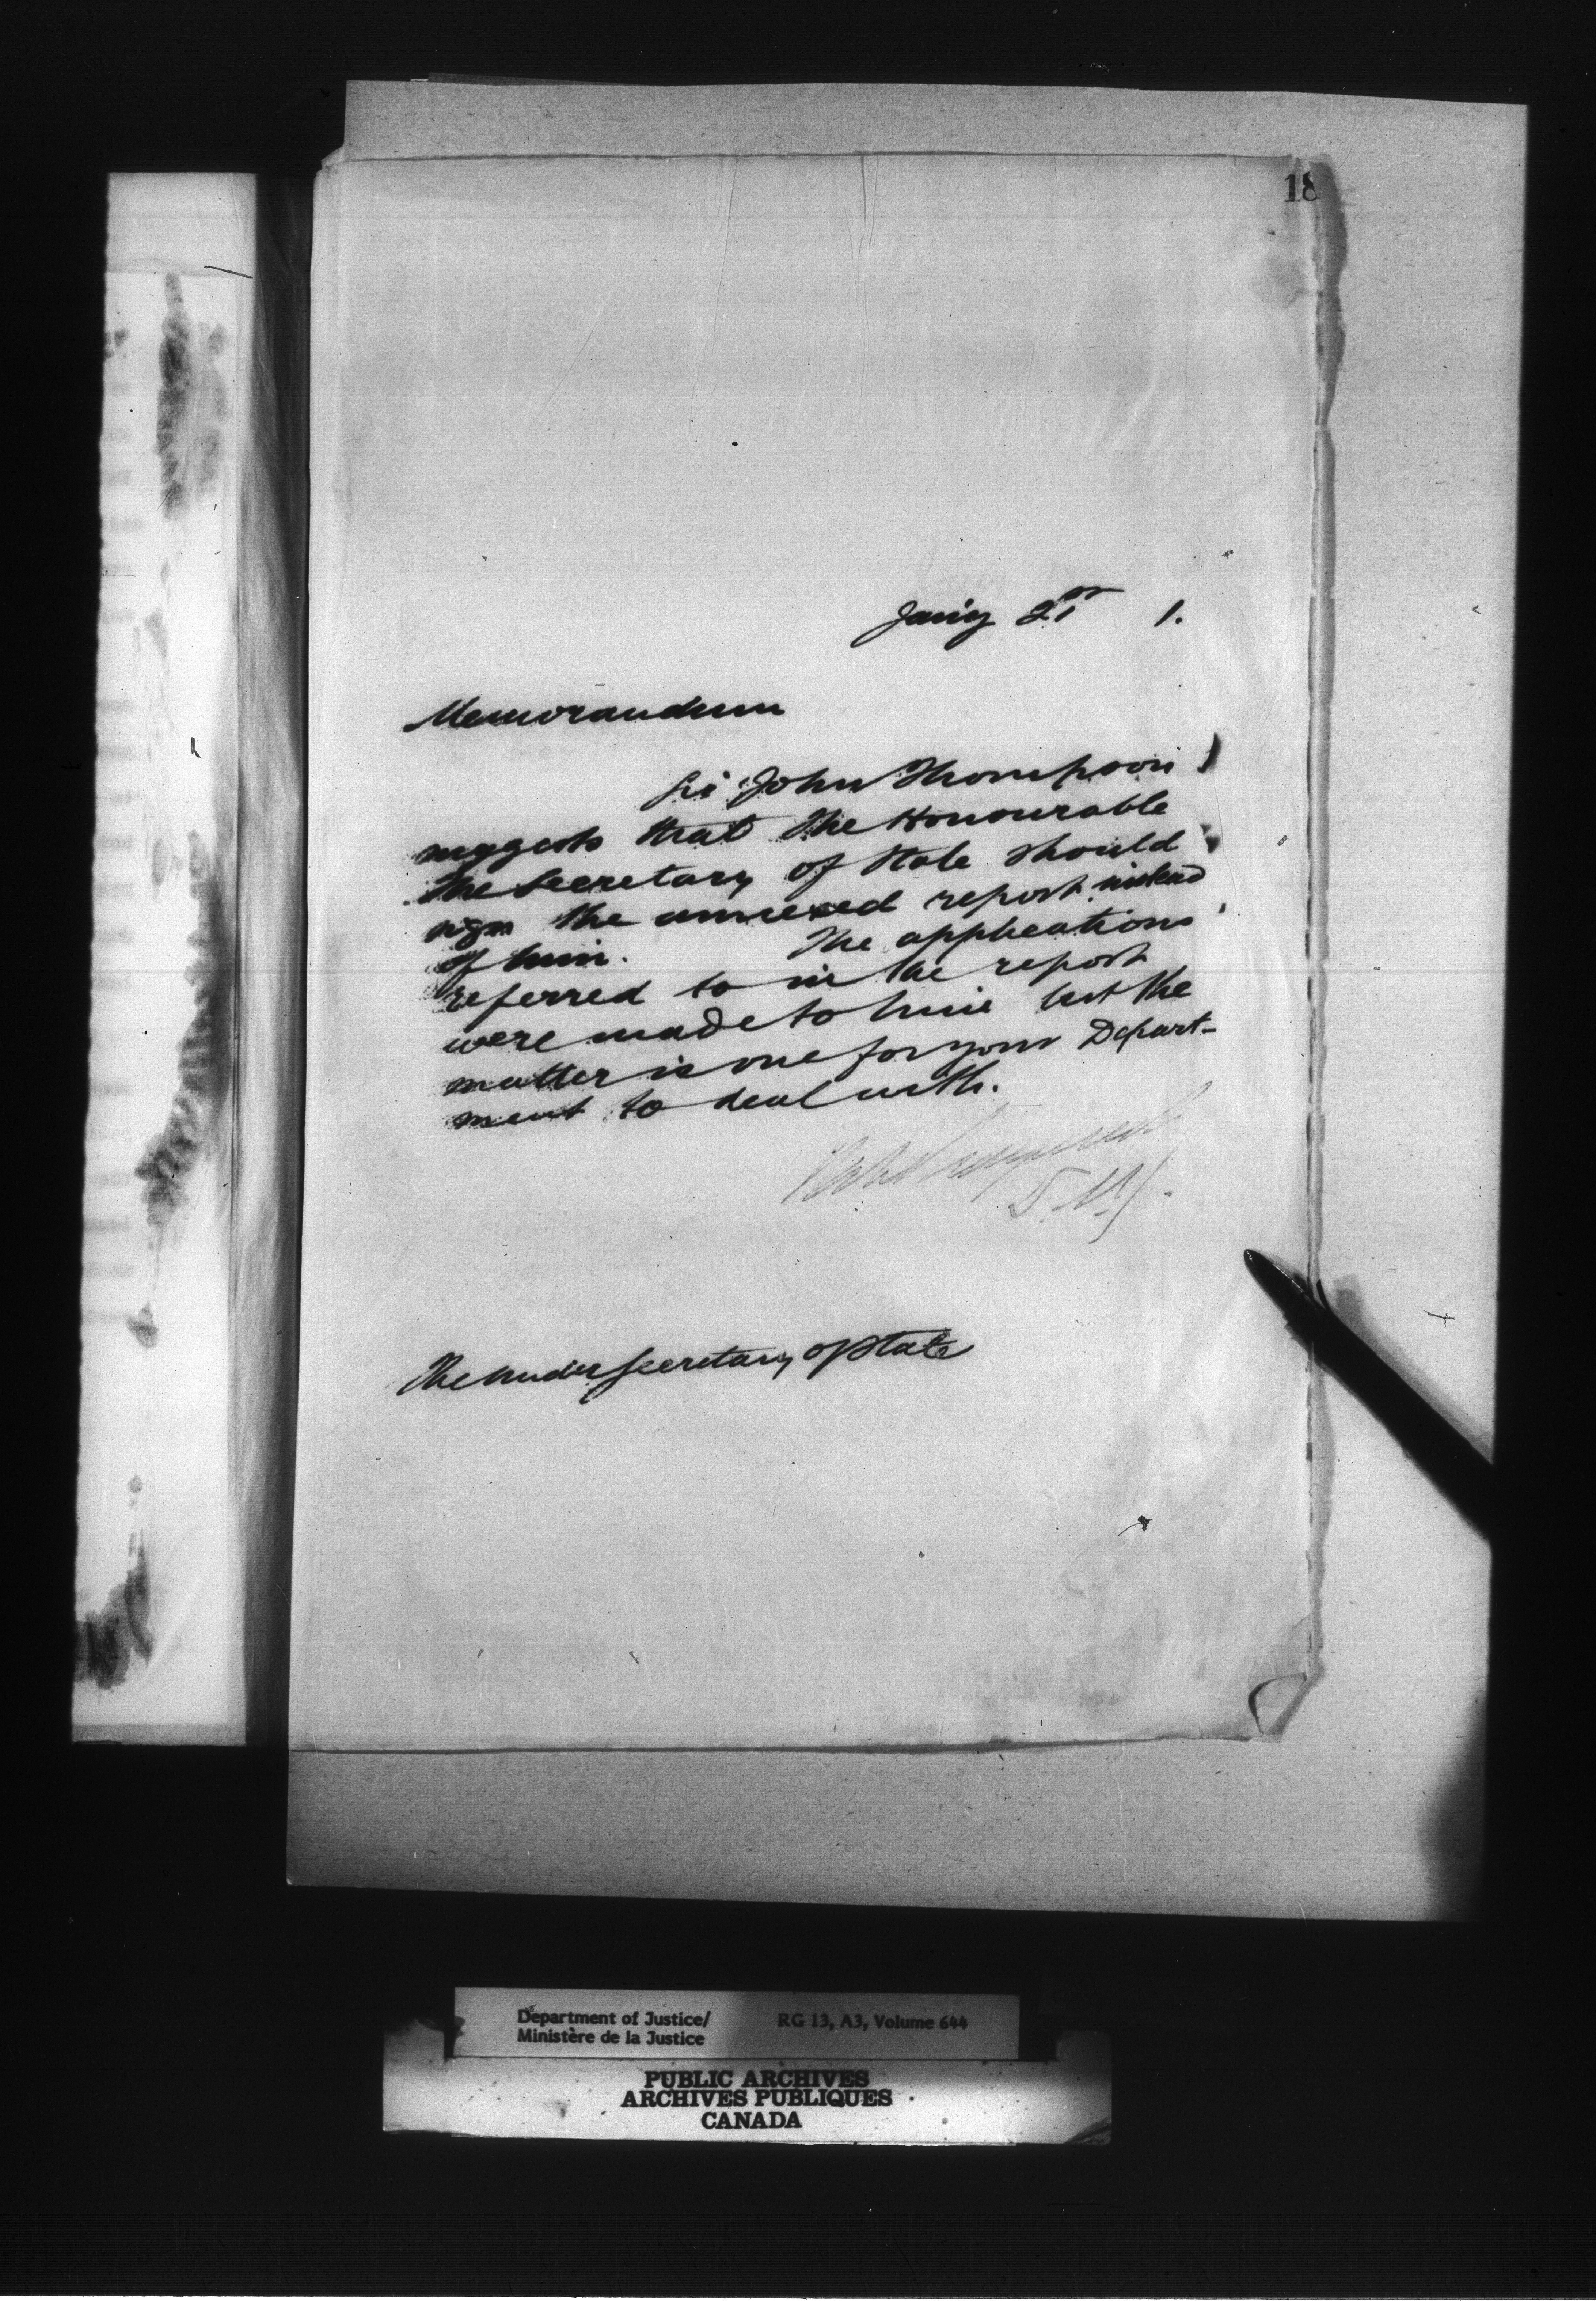 18
Jan'y 21st 1.
Memorandum
Sir John Thompson
suggests that the Honourable
the Secretary of State should
sign the annexed report instead
of him. The applications
referred to in the report
were made to him but the
matter is one for your Depart-
ment to deal with.
D.M.J.
The Under Secretary of State
Department of Justice/ RG 13, A3, Volume 644
Ministère de la Justice
PUBLIC ARCHIVES
ARCHIVES PUBLIQUES
CANADA